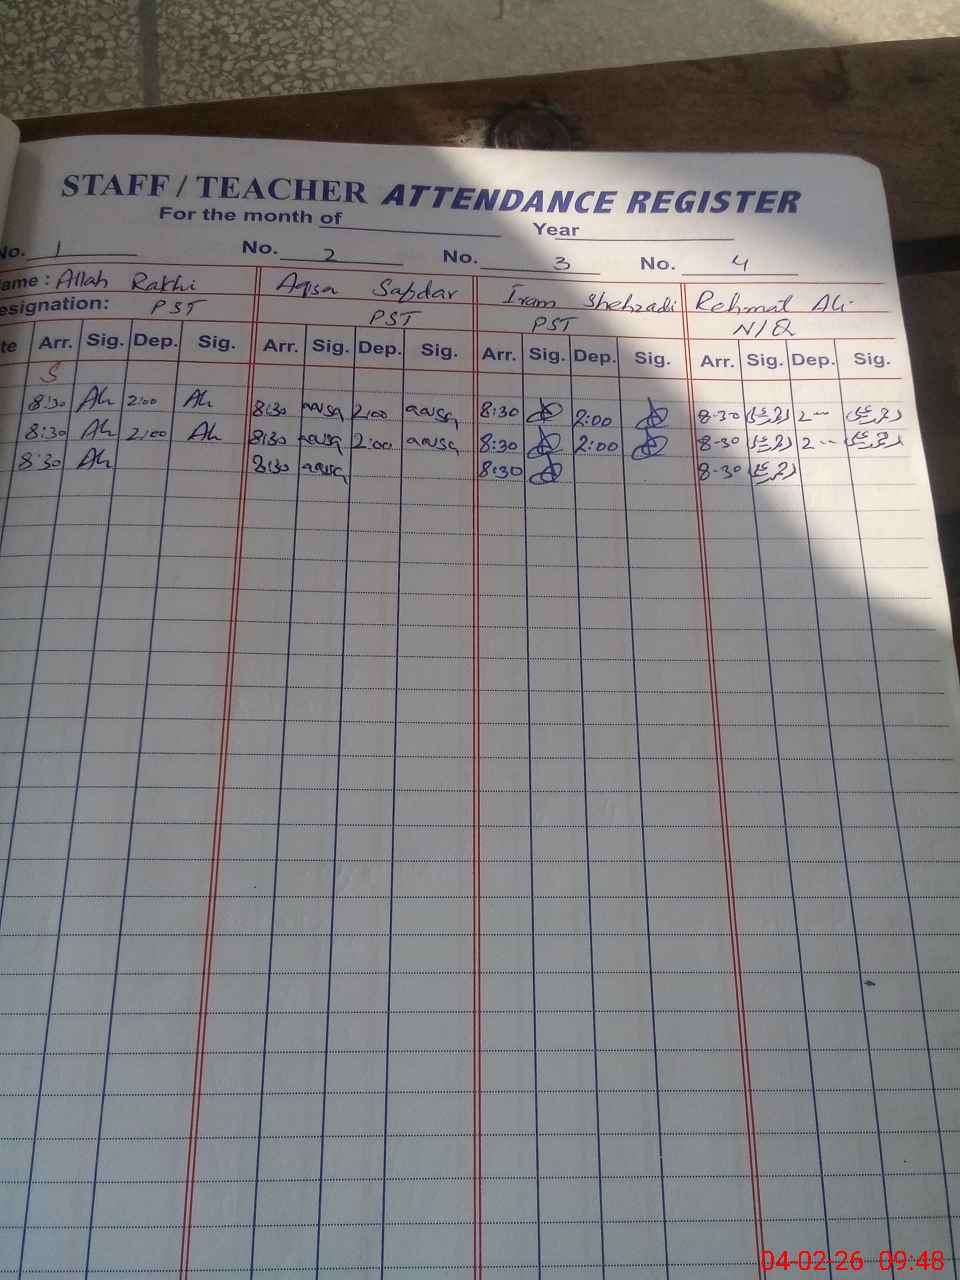 STAFF / TEACHER ATTENDANCE REGISTER
For the month of Year
No. 1 No. 2 No. 3 No. 4
ame : Allah Rakhi Aqsa Safdar Iram Shehzadi Rehmat Ali
esignation: PST PST PST N/Q
te Arr. Sig. Dep. Sig. Arr. Sig. Dep. Sig. Arr. Sig. Dep. Sig. Arr. Sig. Dep. Sig.
S
8:30 2:00 8:30 2:00 8:30 2:00 8-30 2--
8:30 2:00 8:30 2:00 8:30 2:00 8-30 2--
8:30 8:30 8:30 8-30
04-02-26 09:48